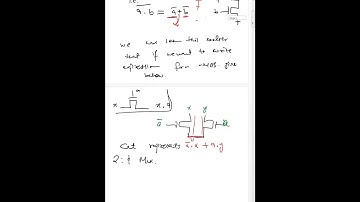 a . b = a + b
b
we can learn this earlier
that if we want to write
expression for mos. give
below.
x x, a
x y
a
Ckt represents a . x + a . y
2:1 Mux.